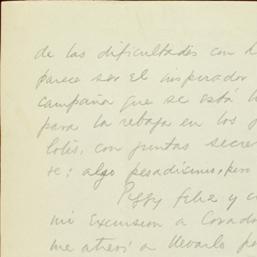 de las dificultades con
parece ser el inspirador
campaña que se está
para la rebaja en los
lotis, con juntas secre
se; algo pesadísimo, pero
Peggy feliz y
mi excursion a Covado
me atreví a llevarlo